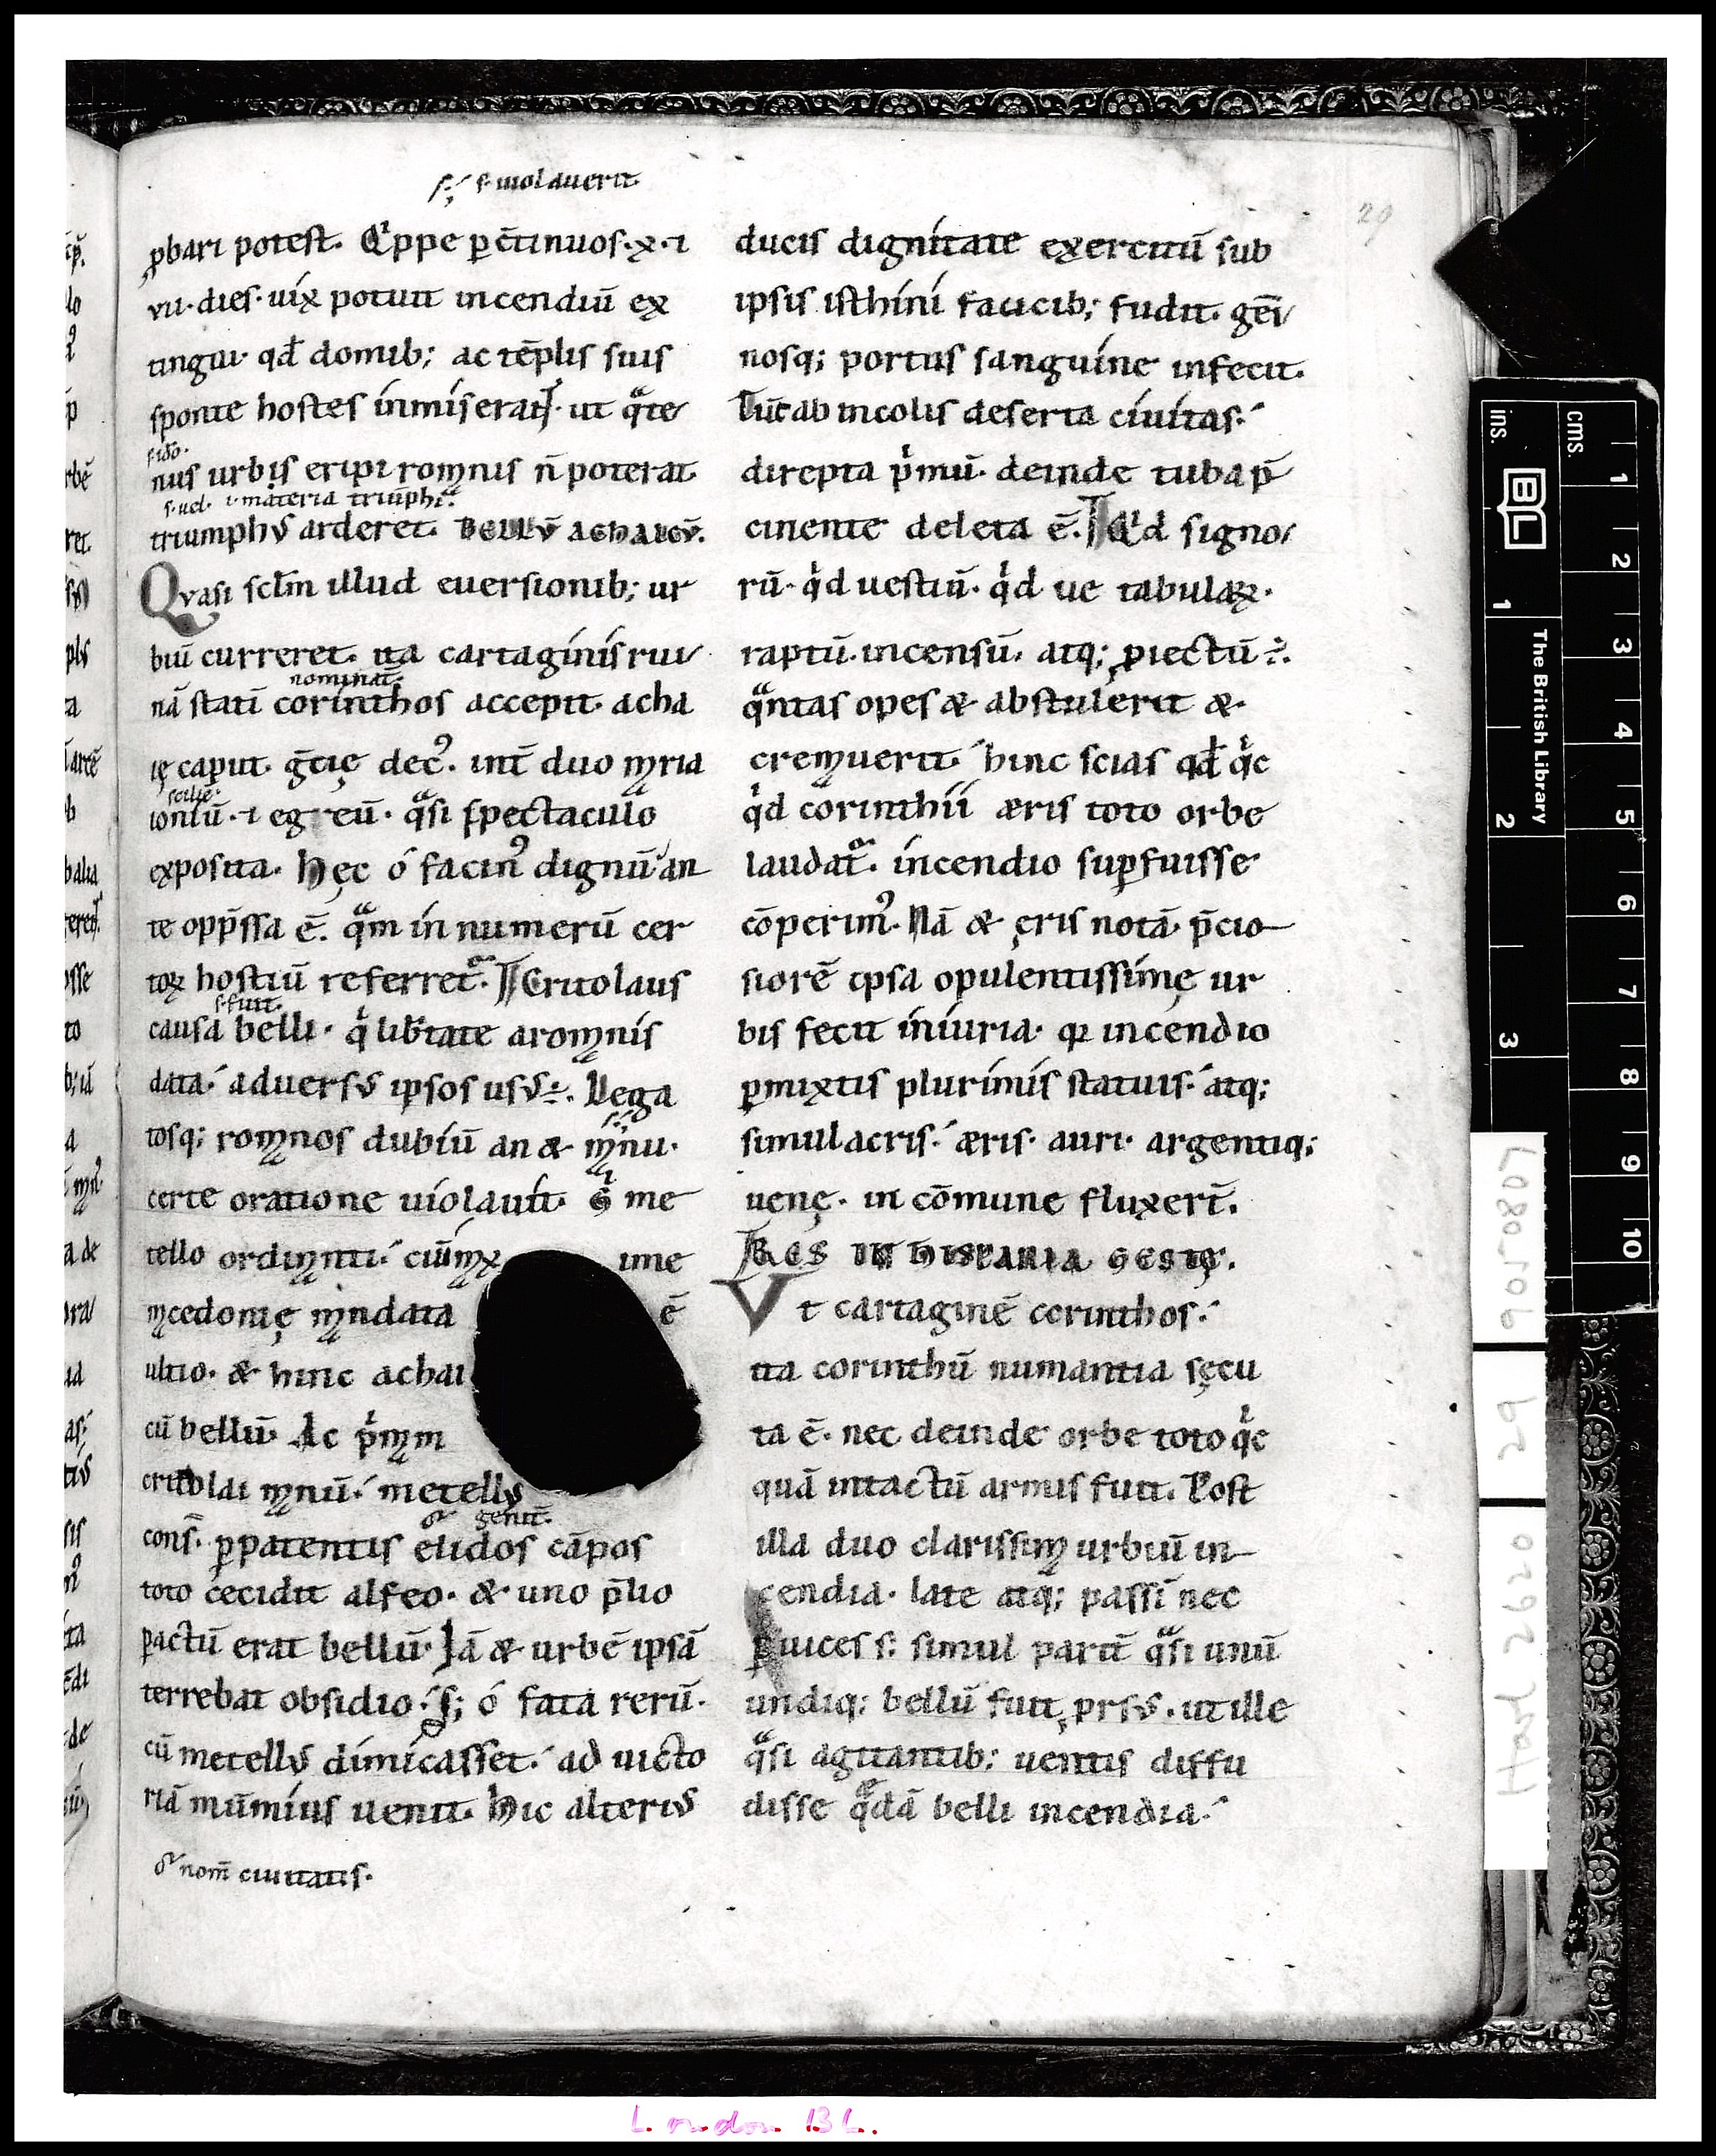 s; s. uiolauerit.
ꝓbari potest. Qͥppe ꝑ ꝯtinuos·x·⁊
vii·dies·uix potuit incendiū ex
tingui· qđ domib; ac tēplis suis
sponte hostes inmiserant· ut qͣte
s. ido.
nus urbis eripi romanis n̄ poterat
s. uel· i· materia triūphi.
triumphꝰ arderet. BELLV̄ ACHAICV̄.
Qvasi sclm̄ illud euersionib; ur
biū curreret. ita cartaginis rui
nominat.
nā statī corinthos accepit· acha
ię caput· gc̄ię decꝰ. int̄ duo maria
ioniū·⁊ egeū· qͣsi spectaculo
exposita. Hęc ó facinꝰ dignū an
te opp̄ssa ē. qͣm in numerū cer
toꝝ hostiū referret. Critolaus
s. fuit.
causa belli· qͥ lib̄tate a romanis
data· aduersꝰ ipsos usꝰ÷. Lega
tosq; romanos dubiū an & manu·
certe oratione uiolauit· g̊ me
tello ordinanti· cuī max ime
macedonię mandata ē
ultio· & hinc achai
cū bellū· Ac pͥmam
critolai manū· metellꝰ
genit.
cons̄· ꝑ patentis elidos cāpos
toto cecidit alfeo· & uno p̄lio
ꝑactū erat bellū· Iā & urbē ipsā
terrebat obsidio· s; ó fata rerū·
cū metellꝰ dimicasset· ad uicto
riā mūmius uenit. Hic alterius
nom̄ ciuitatis.
ducis dignitate exercitū sub
ipsis isthini faucib; fudit· gēi
nosq; portus sanguine infecit.
Tūc ab incolis deserta ciuitas·
direpta pͥmū· deinde tuba p̄
cinente deleta ē. Qͥd signo
rū· qͥd uestiū· qͥd ue tabulaꝝ·
raptū· incensū· atq; ꝓiectū ÷.
qͣntas opes & abstulerit &·
cremauerit· hinc scias qđ qͥc
qͥd corinthii æris toto orbe
laudat᷑. incendio suꝑfuisse
cōperimꝰ. Nā & ęris notā· p̄cio
siorē ipsa opulentissimę ur
bis fecit iniuria· qꝛ incendio
ꝑmixtis plurimis statuis· atq;
simulacris· æris· auri· argentiq;
uenę· in cōmune fluxer̄t.
RES IN HISPANIA GESTĘ.
Vt cartaginē corinthos·
ita corinthū numantia sęcu
ta ē· nec deinde orbe toto qͥc
quā intactū armis fuit. Post
illa duo clarissima urbiū in
cendia· late atq; passī nec
ꝑ uices s; simul parit̄ qͣsi unū
undiq; bellū fuit ꝓrsꝰ· ut ille
qͣsi agitantib; uentis diffu
disse qͣdā belli incendia·
29
ins.
cms.
1
2
3
1
2
3
4
5
6
7
8
9
10
BL
The British Library
L0801.06
29
Harl 2620
London BL.